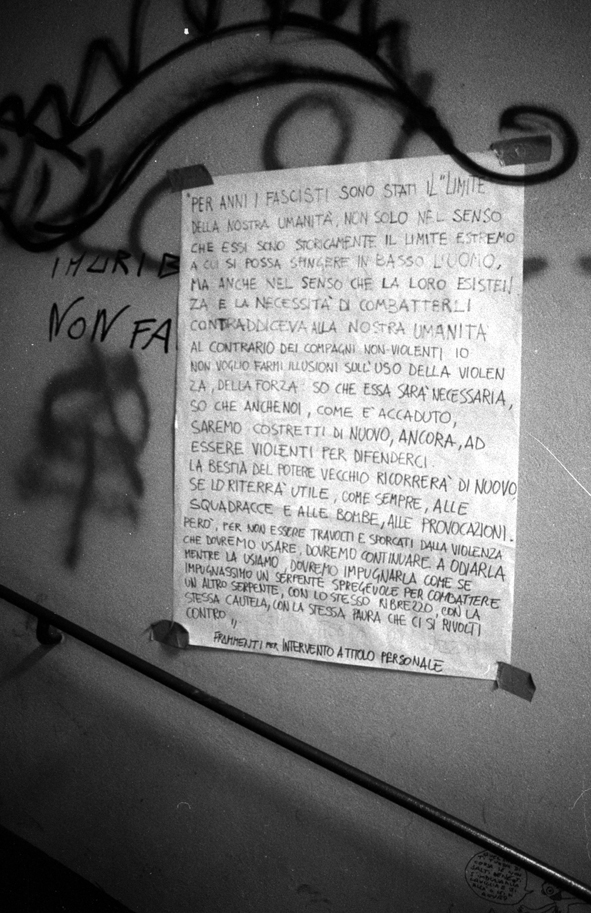 "PER ANNI I FASCISTI SONO STATI IL "LIMITE
DELLA NOSTRA UMANITÀ, NON SOLO NEL SENSO
CHE ESSI SONO STORICAMENTE IL LIMITE ESTREMO
A CUI SI POSSA SPINGERE IN BASSO L'UOMO,
MA ANCHE NEL SENSO CHE LA LORO ESISTEN
ZA E LA NECESSITÀ DI COMBATTERLI
CONTRADDICEVA ALLA NOSTRA UMANITÀ
AL CONTRARIO DEI COMPAGNI NON-VIOLENTI IO
NON VOGLIO FARMI ILLUSIONI SULL'USO DELLA VIOLEN
ZA, DELLA FORZA: SO CHE ESSA SARÀ NECESSARIA,
SO CHE ANCHE NOI, COME È ACCADUTO,
SAREMO COSTRETTI DI NUOVO, ANCORA, AD
ESSERE VIOLENTI PER DIFENDERCI.
LA BESTIA DEL POTERE VECCHIO RICORRERÀ DI NUOVO
SE LO RITERRÀ UTILE, COME SEMPRE, ALLE
SQUADRACCE E ALLE BOMBE, ALLE PROVOCAZIONI.
PERÒ, PER NON ESSERE TRAVOLTI E SPORCATI DALLA VIOLENZA
CHE DOVREMO USARE, DOVREMO CONTINUARE A ODIARLA
MENTRE LA USIAMO, DOVREMO IMPUGNARLA COME SE
IMPUGNASSIMO UN SERPENTE SPREGEVOLE PER COMBATTERE
UN ALTRO SERPENTE, CON LO STESSO RIBREZZO, CON LA
STESSA CAUTELA, CON LA STESSA PAURA CHE CI SI RIVOLTI
CONTRO"
FRAMMENTI PER INTERVENTO A TITOLO PERSONALE
I MURI B
NON FA